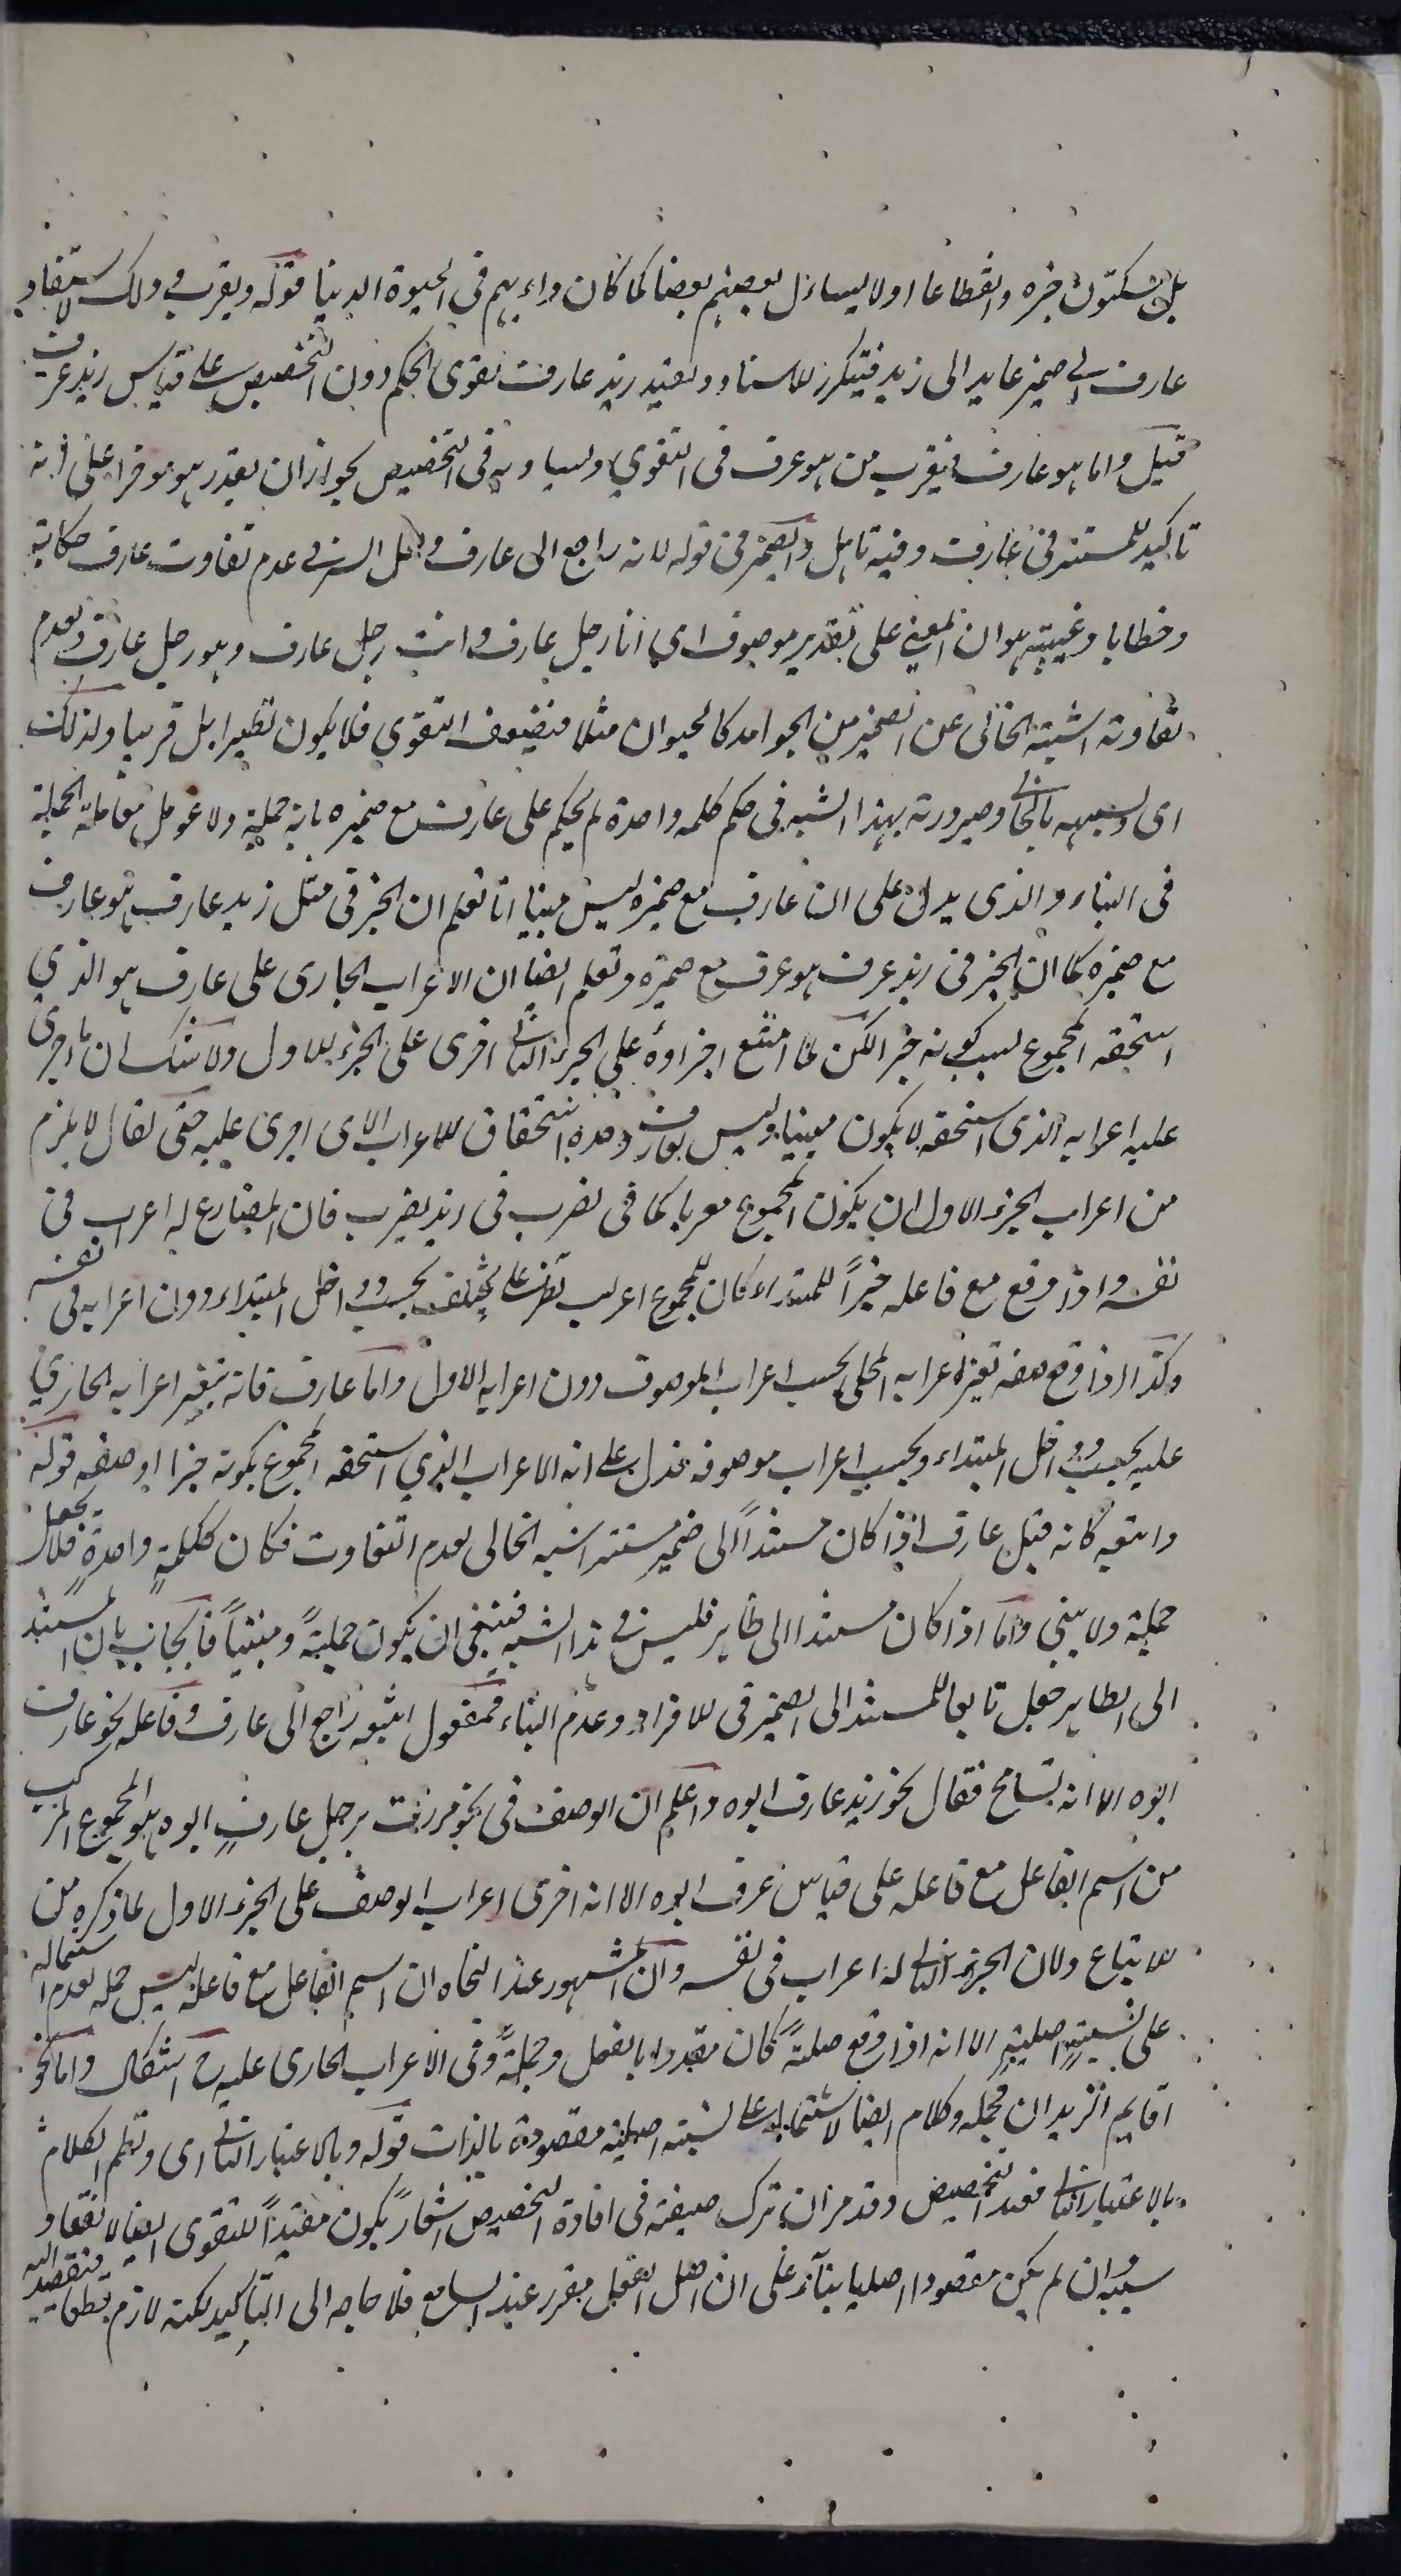 بل يسكتون خبره وانقطاعا اولا يتساءل بعضهم بعضا كما كان داءبهم فى الحيوة الدنيا قوله ويقرب فى ذلك لاستناد
عارف الى ضمير عايد الى زيد فيتكرر الاسناد ويفيد زيد عارف تقوى الحكم دون التخصيص على قياس زيد عرف
قيل واما هو عارف فيقرب من هو عرف فى التقوي ويساويه فى التخصيص لجواز ان يقدر هو موخرا على انه
تاكيد للمستتر فى عارف وفيه تامل والضمير فى قوله لانه راجع الى عارف ولعل السر فى عدم تفاوت عارف حكاية
وخطابا وغيبة هو ان المعنى على تقدير موصوف اي انا رجل عارف وانت رجل عارف وهو رجل عارف ولعدم
تفاوته اشبه الخالى عن الضمير من الجوامد كالحيوان مثلا فيضعف التقوي فلا يكون نظيرا بل قريبا ولذلك
اى ولشبهه بالخالى وصيرورته بهذا الشبه فى حكم كلمة واحدة لم يحكم على عارف مع ضميره بانه جملة ولا عومل معاملة الجملة
فى البناء والذى يدل على ان عارف مع ضميره ليس مبنيا انا نعلم ان الخبر فى مثل زيد عارف هو عارف
مع ضميره كما ان الخبر فى زيد عرف هو عرف مع ضميره ونعلم ايضا ان الاعراب الجارى على عارف هو الذي
استحقه المجموع بسبب كونه خبرا لكن لما امتنع اجراؤه على الجزء الثانى اجرى على الجزء الاول ولا شك ان ما اجرى
عليه اعرابه الذى استحقه لا يكون مبنيا وليس لعارف وحده استحقاق للاعراب الذى اجرى عليه حتى يقال لا يلزم
من اعراب الجزء الاول ان يكون المجموع معربا كما فى يضرب فى زيد يضرب فان المضارع له اعراب فى
نفسه واذا وقع مع فاعله خبراً للمبتداء كان للمجموع اعراب محلى يختلف بحسب دواخل المبتداء دون اعرابه فى نفسه
وكذا اذا وقع صفة تغير اعرابه المحلى بحسب اعراب الموصوف دون اعرابه الاول واما عارف فانه يتغير اعرابه الجاري
عليه بحسب دواخل المبتداء وبحسب اعراب موصوفه فدل على انه الاعراب الذي استحقه المجموع بكونه خبرا او صفة قوله
واتبعه كانه قيل عارف اذا كان مسنداً الى ضمير مستتر اشبه الخالى لعدم التفاوت فكان ككلمة واحدة فلا يجعل
جملة ولا يبنى واما اذا كان مسندا الى ظاهر فليس فيه هذا الشبه فينبغى ان يكون جملةً ومبنياً فاجاب بان المسند
الى الظاهر جعل تابعا للمسند الى الضمير فى الافراد وعدم البناء فمفعول اتبعه راجع الى عارف وفاعله نحو عارف
ابوه الا انه تسامح فقال نحو زيد عارف ابوه واعلم ان الوصف فى نحو مررت برجل عارف ابوه هو المجموع المركب
من اسم الفاعل مع فاعله على قياس عرف ابوه الا انه اجرى اعراب الوصف على الجزء الاول لما ذكره من
الاتباع ولان الجزء الثانى له اعراب فى نفسه وان المشهور عند النحاه ان اسم الفاعل مع فاعله ليس جملة لعدم اشتماله
على نسبة اصلية الا انه اذا وقع صلةً كان مقدرا بالفعل وجملةً وفى الاعراب الجارى عليه ح اشكال واما نحو
اقايم الزيدان فجملة وكلام ايضا لاشتماله على نسبة اصلية مقصودة بالذات قوله وبالاعتبار الثانى اى ونظم الكلام
بالاعتبار الثانى مفيد التخصيص وقد مر ان ترك صيغته فى افادة التخصيص اشعار بكون مفيداً للتقوى ايضا لانعقاد
سببه وان لم يكن مقصودا اصليا بناءً على ان اصل الفعل مقرر عند السامع فلا حاجه الى التاكيد لكنه لازم قطعا فيقصد اليه